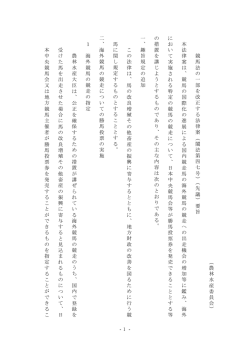 （農林水産委員会）
競馬法の一部を改正する法律案（閣法第四七号）（先議）要旨
本法律案は、競馬の国際化の進展による国内競走馬の海外競馬の競走への出走機会の増加等に鑑み、海外
において実施される競馬の競走について、日本中央競馬会等が勝馬投票券を発売できることとする等
の措置を講じようとするものであり、その主な内容は次のとおりである。
一、趣旨規定の追加
この法律は、馬の改良増殖その他畜産の振興に寄与するとともに、地方財政の改善を図るために行う競
馬に関し規定するものとすることとする。
二、海外競馬の競走についての勝馬投票の実施
１　海外競馬の競走の指定
農林水産大臣は、公正を確保するための措置が講ぜられている海外競馬の競走のうち、国内で登録を
受けた馬を出走させた場合に馬の改良増殖その他畜産の振興に寄与すると見込まれるものについて、日
本中央競馬会又は地方競馬主催者が勝馬投票券を発売することができるものを指定することができるこ
- 1 -